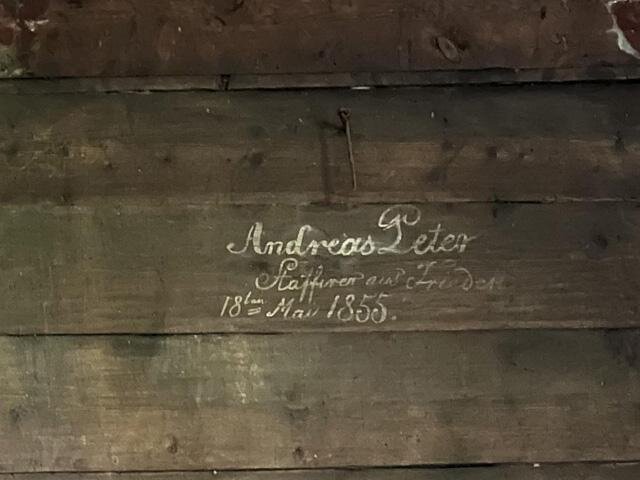 Andreas Peter
Staffirer aus
18ten Mai 1855.